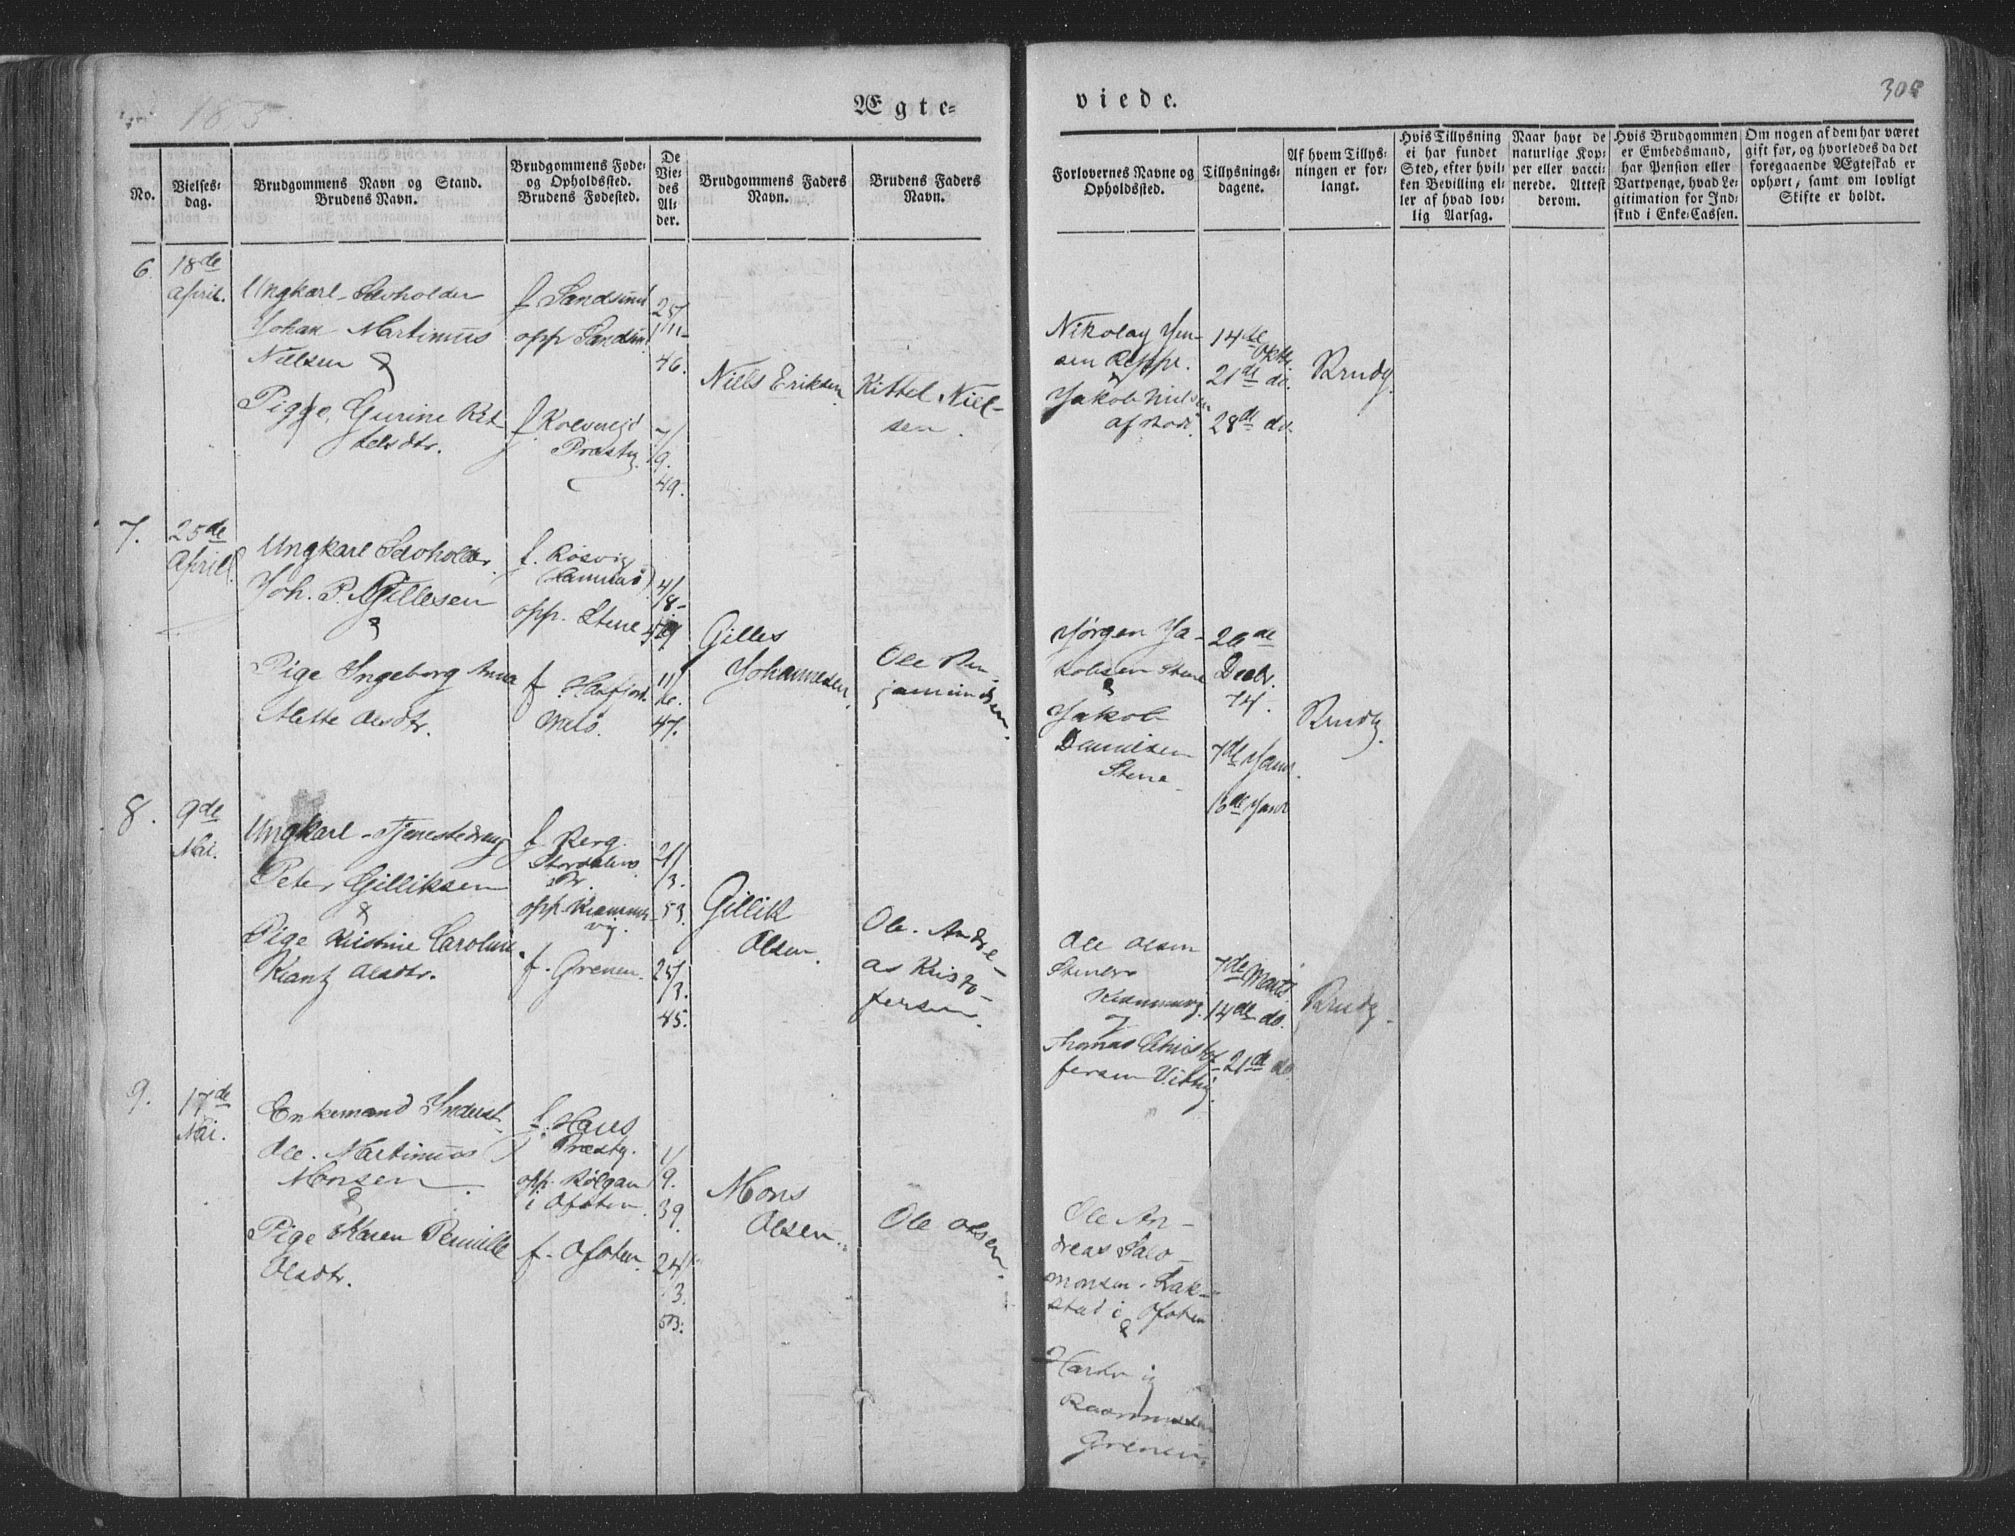 Ægte=
viede.
308
No.
Vielses=
dag.
Brudgommens Navn og Stand.
Brudens Navn.
Brudgommens Føde=
og Opholdssted.
Brudens Fødested.
De
Vie=
des
Al=
der.
Brudgommens Faders
Navn.
Brudens Faders
Navn.
Forlovernes Navne og
Opholdssted.
Tillysnings=
dagene.
Af hvem Tillys=
ningen er for=
langt.
Hvis Tillysning
ei har fundet
Sted, efter hvil=
ken Bevilling el=
ler af hvad lov=
lig Aarsag.
Naar havt de
naturlige Kop=
per eller vacci=
nerede. Attest
derom.
Hvis Brudgommen
er Embedsmand,
har Pension eller
Vartpenge, hvad Le=
gitimation for Ind=
skud i Enke=Cassen.
Om nogen af dem har været
gift før, og hvorledes da det
foregaaende Ægteskab er
ophørt, samt om lovligt
Skifte er holdt.
6.
18de
April.
Ungkarl
Johan Martinus
Nielsen &
Pige Gurine Kit
telsdtr.
f Sandsund
opp Sandsun
f Kolvereid
Præstg.
25/
11-
46.
7/
9.
49.
Niels Eriksen
Kittel Niel-
sen.
Nikolay Jen-
sen
Jakob Nielsen
af
14de Oktbr.
21de do.
28de do.
Brudg.
7.
25de
April.
Ungkarl
Joh. P. Gillesen
&
Pige Ingeborg Anna
Alette Olsdtr.
f. Røsvig
opp. Stene
f
4/
8-
11/
47.
Gilles
Johannesen.
Ole Ben
jaminsen.
Jørgen Ja-
kobsen Stene
&
Jakob
Danielsen
Stene
26de
Decbr.
74.
7de Janr.
Janr
Brudg.
8.
9de
Mai.
Ungkarl Tjenestedreng
Peter Gilliksen
&
Pige Kristine Caroline
Krantz Olsdtr.
f. Berg
Stordalens
Pr.
opp.
vig.
f. Grenen.
21/
3.
53.
25/
3.
45.
Gillik
Olsen.
Ole Andre-
as Kristo-
fersen.
Ole Olsen
og
Thomas Christof-
fersen
7de Marts
14de do.
21de do.
Brudg.
9.
17de
Mai.
Enkemand Inderst
Ole Martinus
Monsen.
&
Pige Karen Pernille
Olsdtr.
f. Haus
Præstg.
opp.
i Ofoten.
f. Ofoten.
1/
9.
39.
24/
3.
53.
Mons
Olsen.
Ole Olsen.
Ole An-
dreas Salo-
monsen.
stad i Ofoten
&
Hartvig
Rasmussen
Grenen.